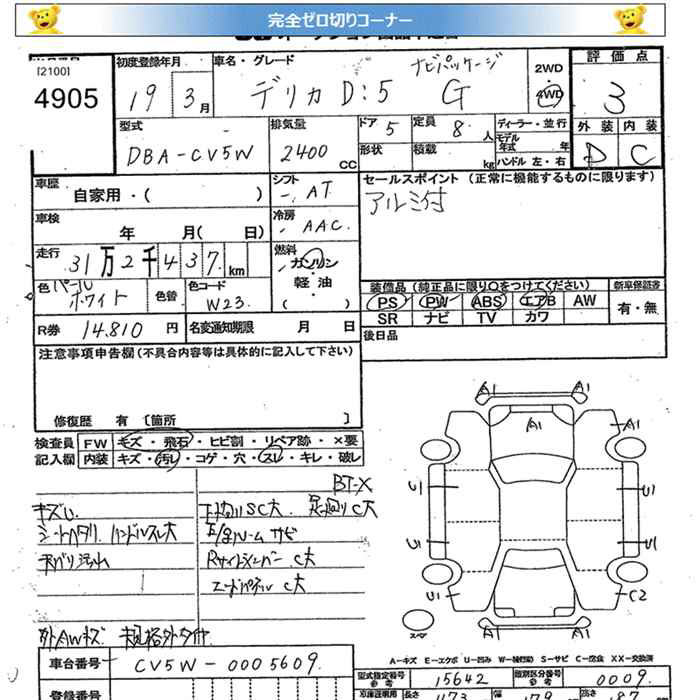 完全ゼロ切りコーナー
[2100]
4905
初度登録年月
19 3月
車名・グレード
デリカ D:5 G
ナビパッケージ
2WD
4WD
評価点
3
型式
DBA-CV5W
排気量
2400 CC
ドア 5
定員 8 人
形状
積載 kg
ディーラー・並行
モデル年式 年
ハンドル 左・右
外装 内装
D C
車歴
自家用・( )
シフト
AT
セールスポイント (正常に機能するものに限ります)
アルミ付
車検
年 月( 日)
冷房
AAC
走行
31万2千437 km
燃料
ガソリン
軽油
( )
色 パール
ホワイト
色替
色コード
W23
装備品(純正品に限り○をつけてください)
新車保証書
PS PW ABS エアB AW
有・無
SR ナビ TV カワ
R券 14,810 円
名変通知期限 月 日
後日品
注意事項申告欄(不具合内容等は具体的に記入して下さい)
修復歴 有 [箇所 ]
検査員
記入欄
FW キズ・飛石・ヒビ割・リペア跡・×要
内装 キズ・汚レ・コゲ・穴・スレ・キレ・破レ
BT-X
下廻りSC大 足廻りC大
シートヘタリ ハンドルスレ大
天バリ汚れ
Rサイドメンバー C大
エンドパネル C大
外AWキズ 規格外タイヤ
A1 A1
A1 A1
U1 U1
U1 U1
U1 C2
スペア
A-キズ E-エクボ U-凹み W-補修跡 S-サビ C-腐食 XX-交換済
車台番号 CV5W-0005609
型式指定番号 15642
類別区分番号 0009
登録番号
長さ 473
幅 179
高さ 187